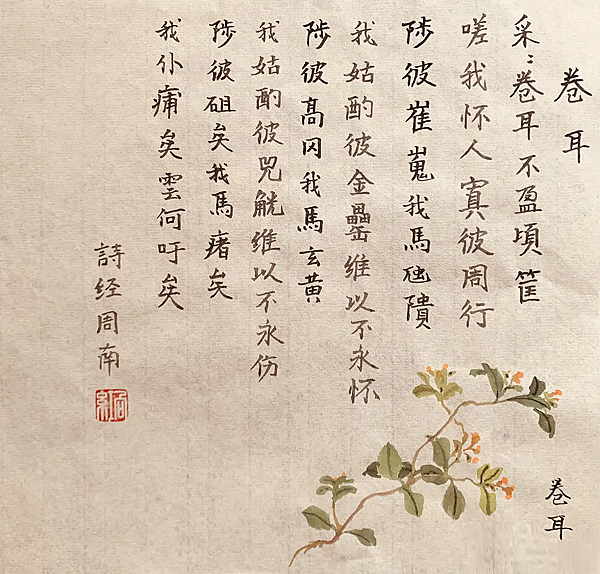 卷耳
采:卷耳不盈頃筐
嗟我怀人寘彼周行
陟彼崔嵬我馬虺隤
我姑酌彼金罍维以不永怀
陟彼高冈我馬玄黄
我姑酌彼兕觥维以不永伤
陟彼砠矣我馬瘏矣
我仆痡矣雲何吁矣
詩经周南
卷耳